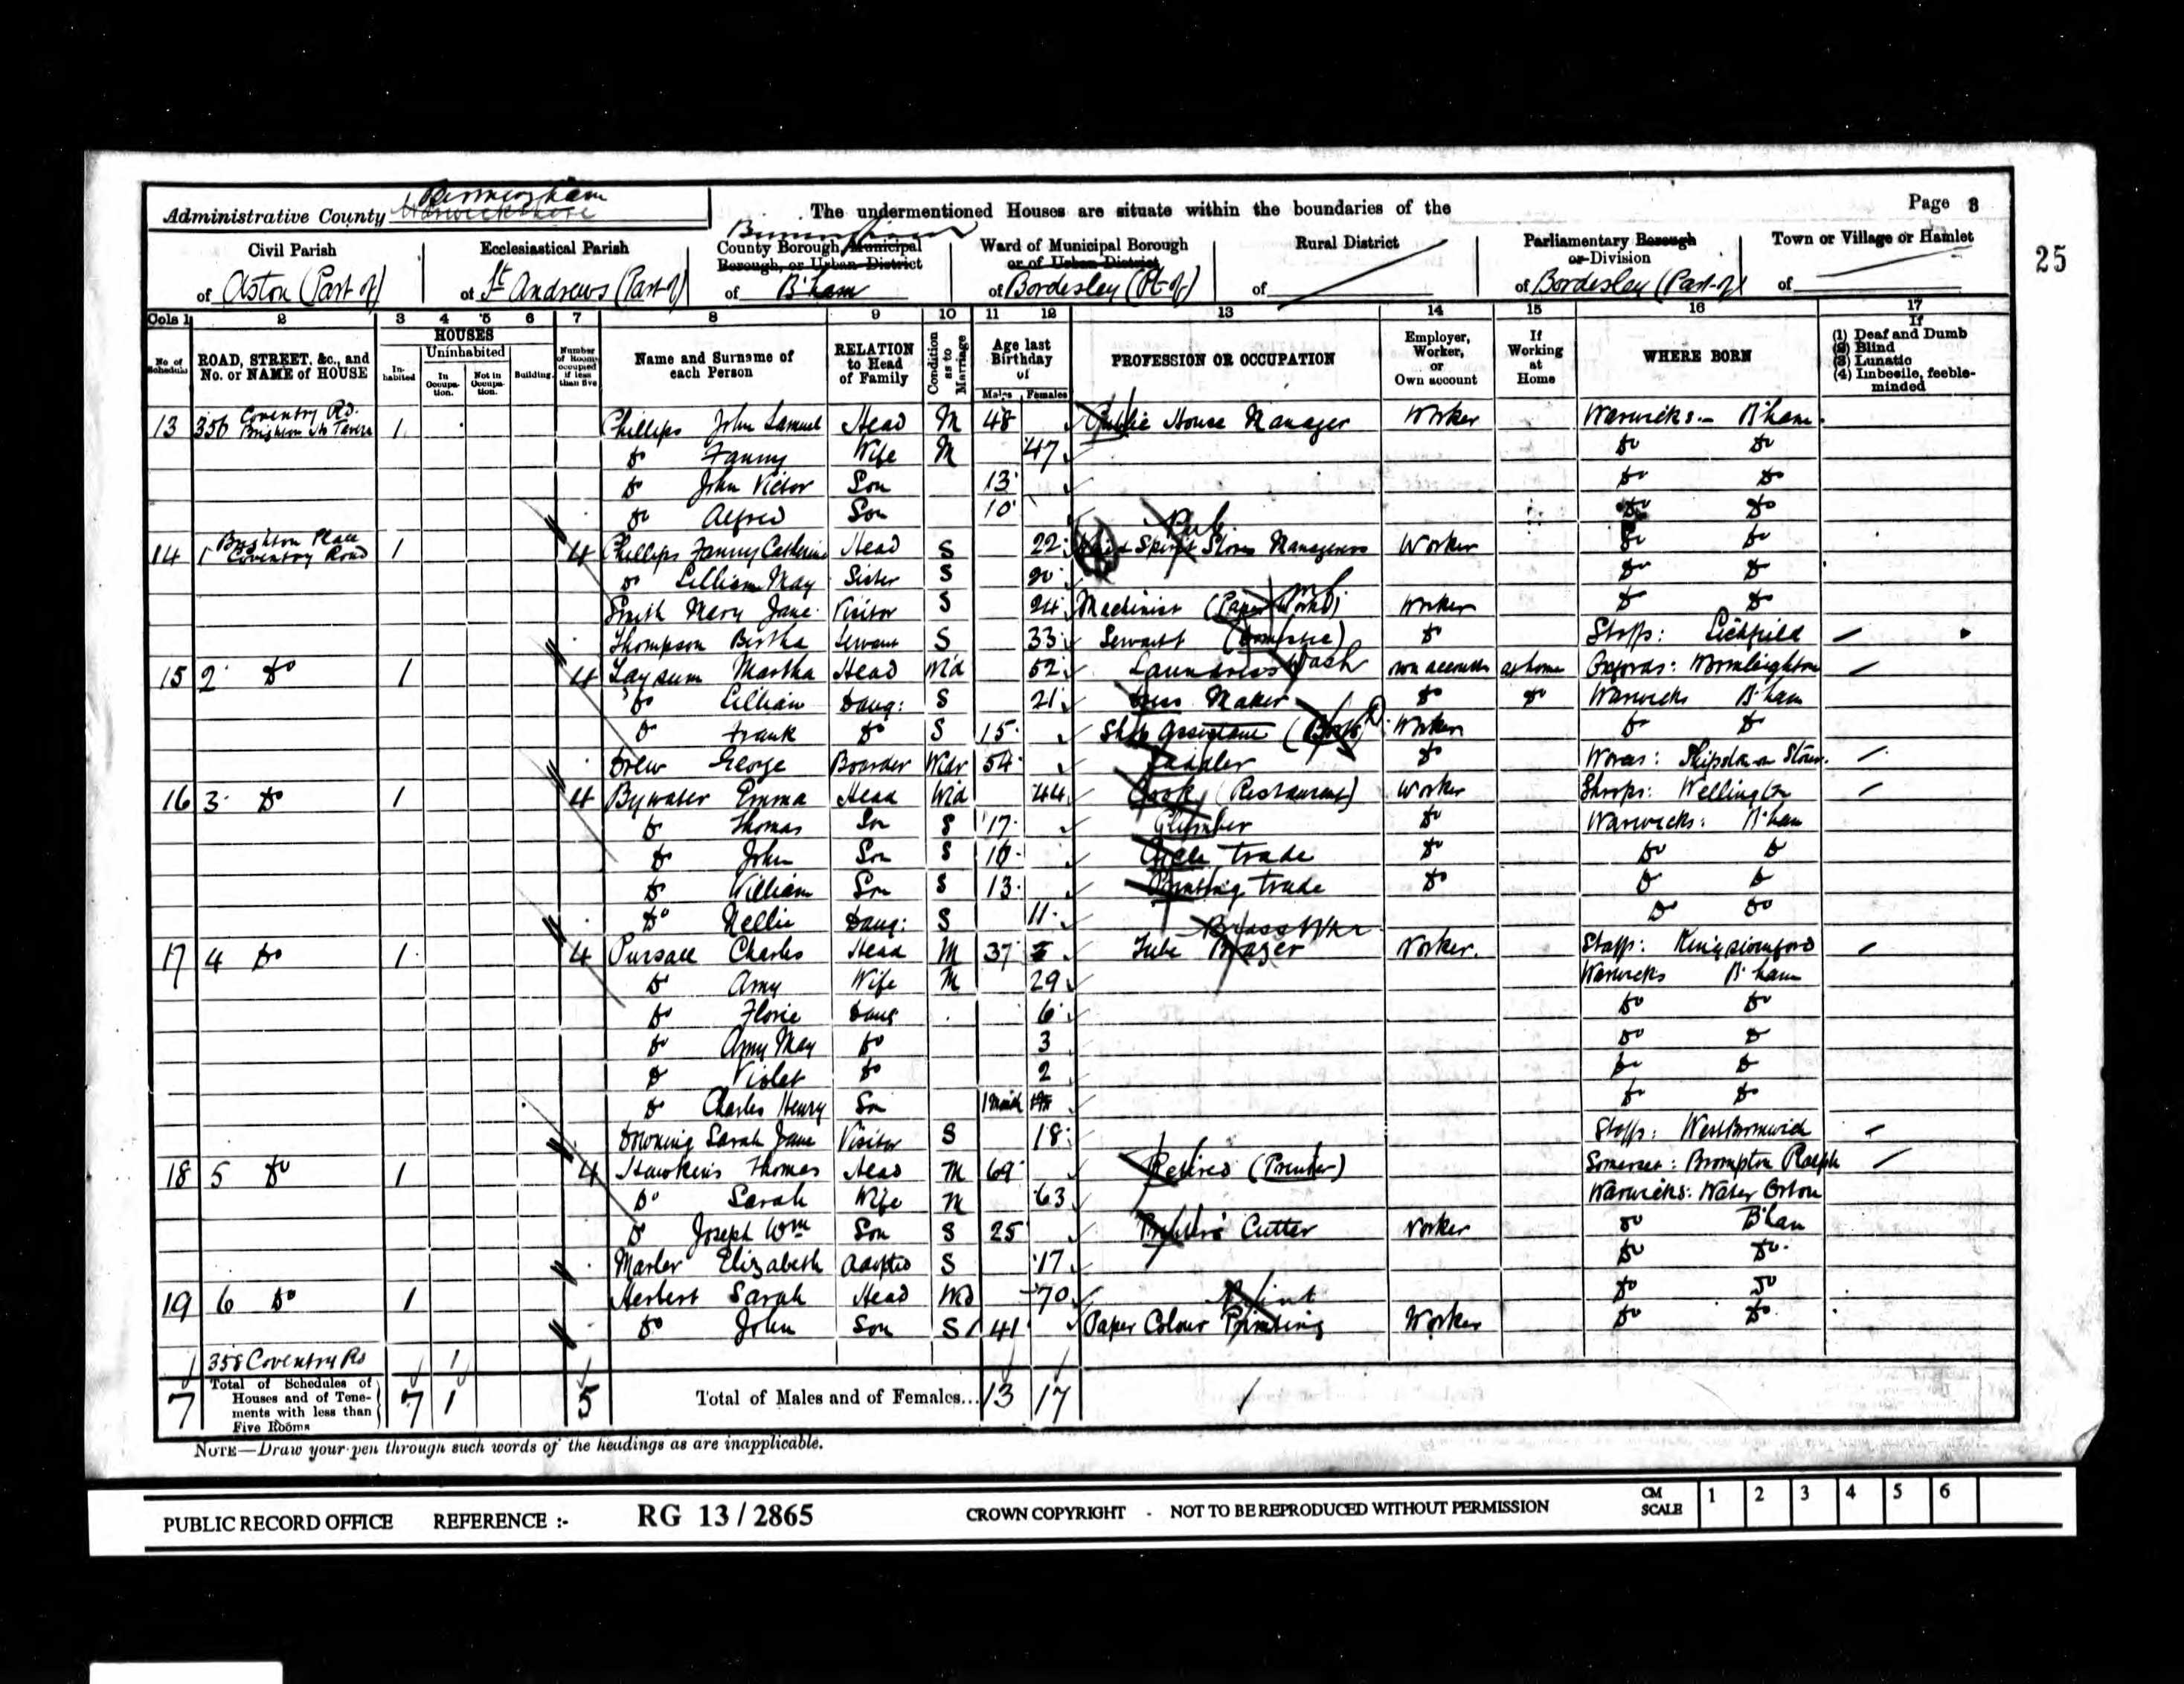 Page 3
25
Administrative County Warwickshire Birmingham
The undermentioned Houses are situate within the boundaries of the
Birmingham
Civil Parish
of Aston (Part of)
Ecclesiastical Parish
of St Andrews (Part of)
County Borough, Municipal
Borough, or Urban District
of B'ham
Ward of Municipal Borough
or of Urban District
of Bordesley (Pt of)
Rural District
of
Parliamentary Borough
or Division
of Bordesley (Part of)
Town or Village or Hamlet
of
Cols 1 2 3 4 5 6 7 8 9 10 11 12 13 14 15 16 17
No. of Schedule
ROAD, STREET, &c., and No. or NAME of HOUSE
HOUSES
In-habited
Uninhabited
In Occupa-tion.
Not in Occupa-tion.
Building
Number of Rooms occupied if less than five
Name and Surname of each Person
RELATION to Head of Family
Condition as to Marriage
Age last Birthday of
Males Females
PROFESSION OR OCCUPATION
Employer, Worker, or Own account
If Working at Home
WHERE BORN
If
(1) Deaf and Dumb
(2) Blind
(3) Lunatic
(4) Imbecile, feeble-minded
13 356 Coventry Rd. Brighton Tavern 1 Phillips John Samuel Head M 48 Public House Manager Worker Warwicks - B'ham
Do Fanny Wife M 47 Do Do
Do John Victor Son 13 Do Do
Do Alfred Son 10 Do Do
Pub.
14 1 Brighton Place Coventry Road 1 4 Phillips Fanny Catherine Head S 22 Spirit Stores Manageress Worker Do Do
Do Lilliam May Sister S 20 Do Do
Smith Mary Jane Visitor S 24 Machinist (Paper Works) Worker Do Do
Thompson Bertha Servant S 33 Servant (Domestic) Do Staffs: Lichfield
15 2 Do 1 4 Laysum Martha Head Wid 52 Laundress Wash own account at home Oxfords:
Do Lillian Daug: S 21 Dress Maker Do Do Warwicks B'ham
Do Frank Do S 15 Shop Assistant Worker Do Do
Drew George Boarder Widr 54 Saddler Do Worces: Shipston on Stour
16 3 Do 1 4 Bywater Emma Head Wid 44 Cook (Restaurant) Worker Shrops: Wellington
Do Thomas Son S 17 Plumber Do Warwicks: B'ham
Do John Son S 16 Cycle Trade Do Do Do
Do William Son S 13 trade Do Do Do
Do Nellie Daug: S 11 Do Do
Brass Wkr
17 4 Do 1 4 Pursall Charles Head M 37 Tube Brazer Worker. Staffs: Kingswinford
Do Amy Wife M 29 Warwicks B'ham
Do Florie Daug 6 Do Do
Do Amy May Do 3 Do Do
Do Violet Do 2 Do Do
Do Charles Henry Son 1 Month Do Do
Downing Sarah Jane Visitor S 18 Staffs: Westbromwich
18 5 Do 1 4 Hawkins Thomas Head M 69 Retired (Printer) Somerset: Brompton Ralph
Do Sarah Wife M 63 Warwicks: Water Orton
Do Joseph Wm Son S 25 Cutter Worker Do B'ham
Marler Elizabeth Adopted S 17 Do Do
19 6 Do 1 Herbert Sarah Head Wid 70 Do Do
Do John Son S 41 Paper Colour Printing Worker Do Do
358 Coventry Rd 1
7 Total of Schedules of Houses and of Tene-ments with less than Five Rooms 7 1 5 Total of Males and of Females... 13 17
NOTE—Draw your pen through such words of the headings as are inapplicable.
PUBLIC RECORD OFFICE REFERENCE :- RG 13 / 2865 CROWN COPYRIGHT - NOT TO BE REPRODUCED WITHOUT PERMISSION CM SCALE 1 2 3 4 5 6